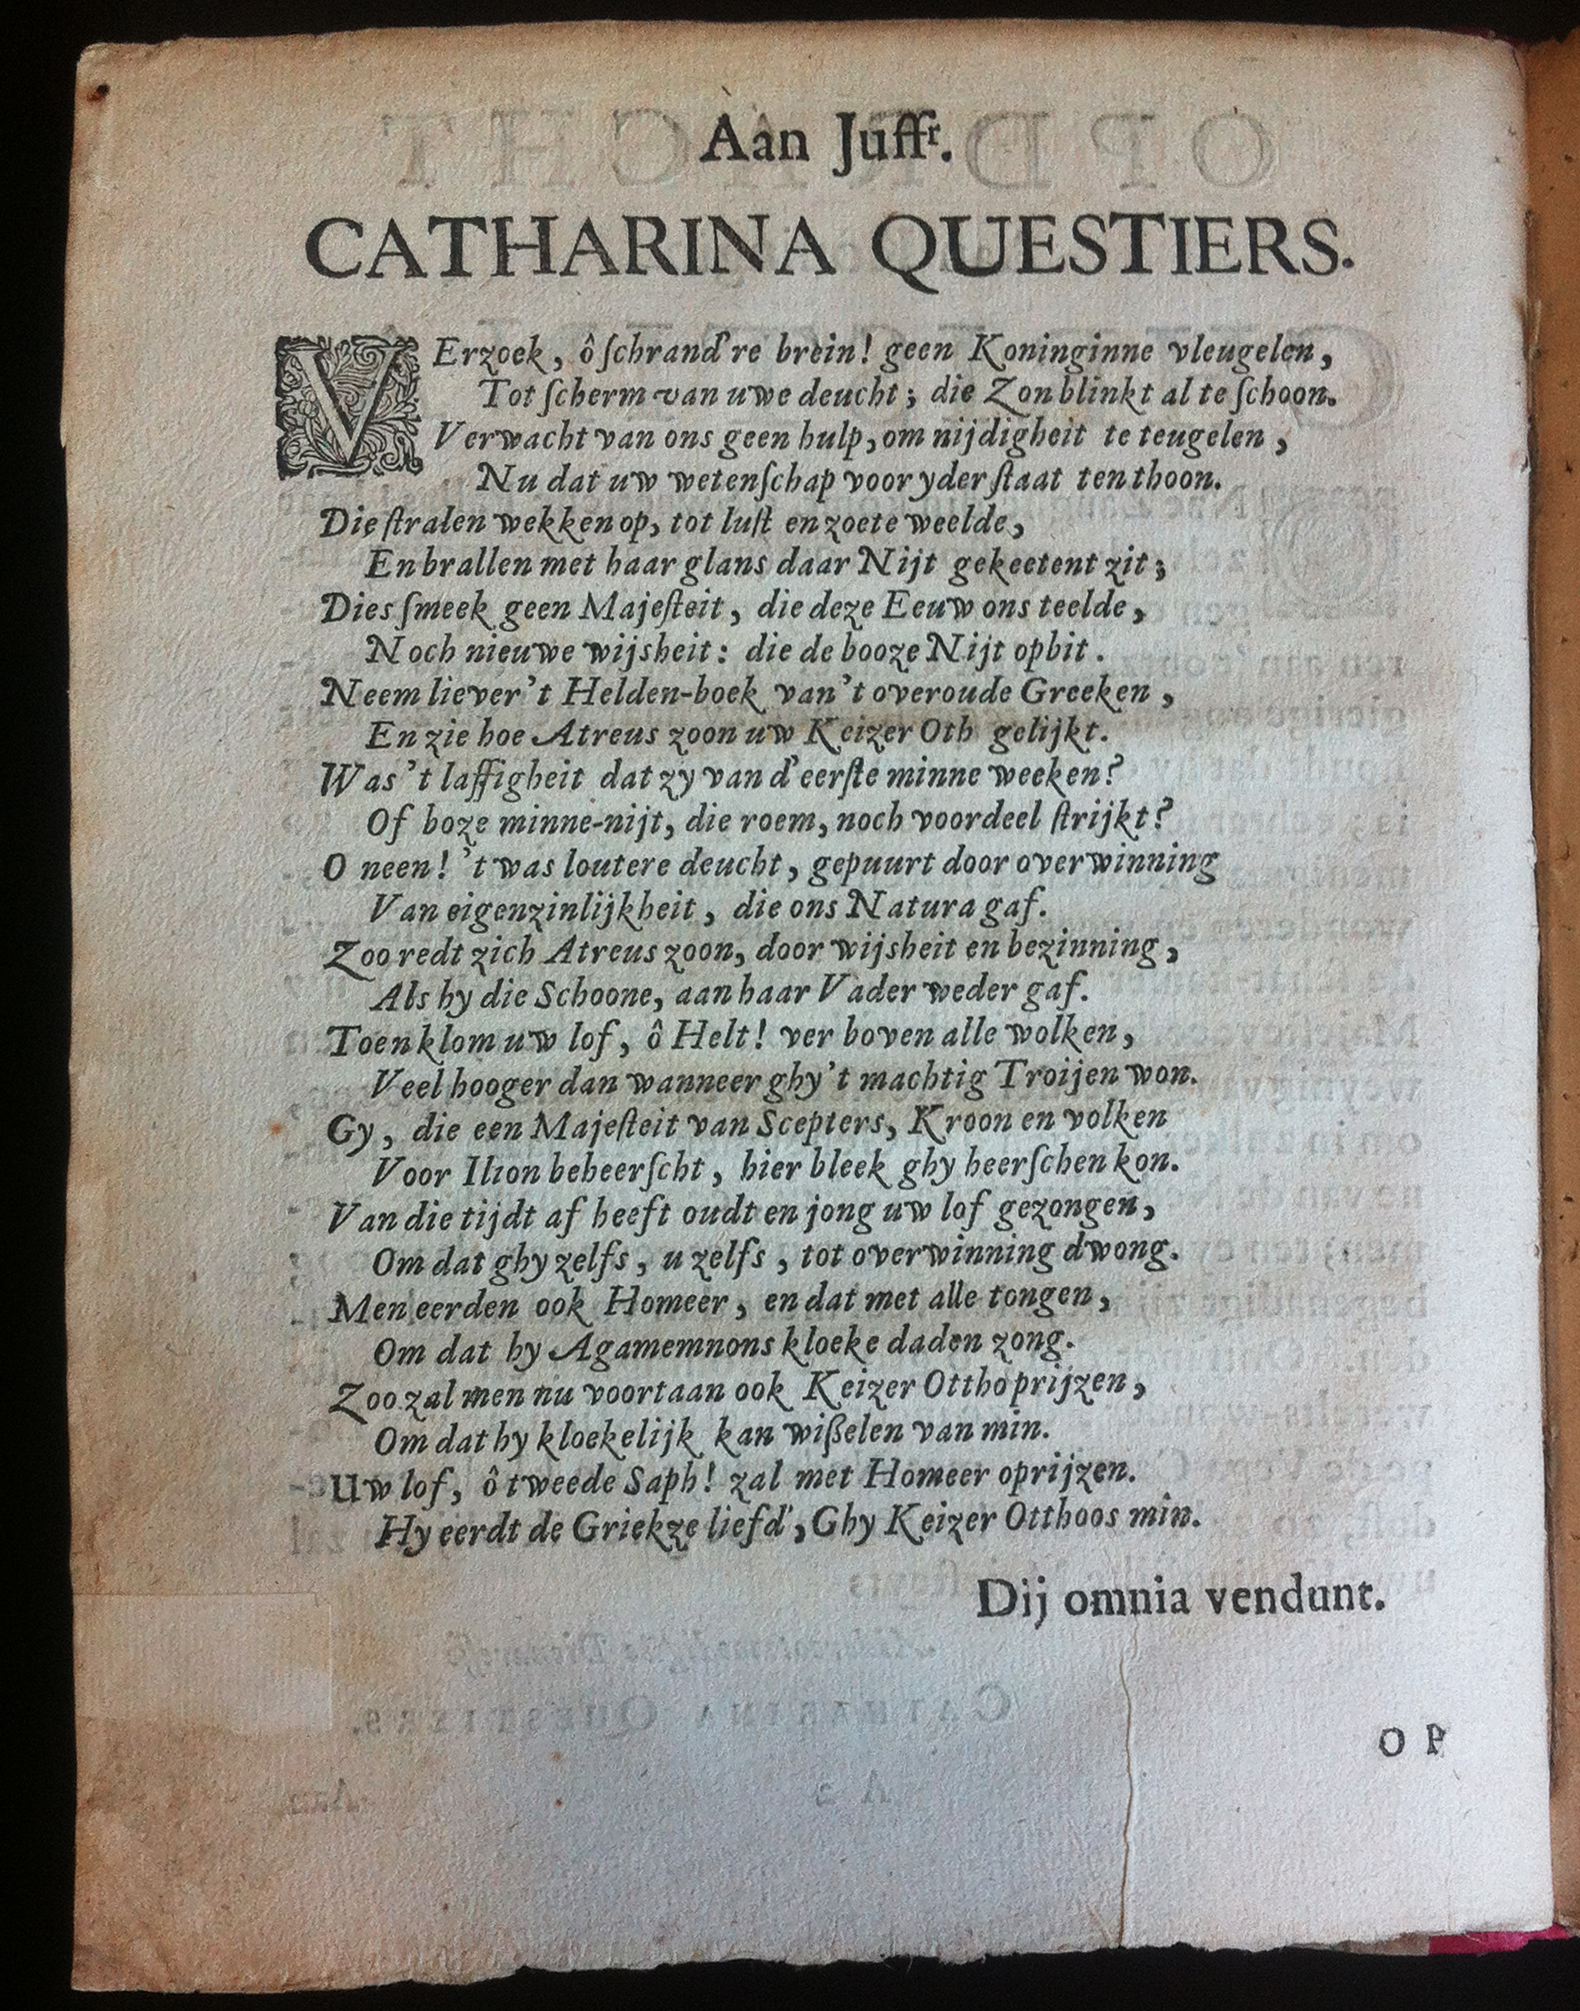 Aan Juffr.
CATHARINA QUESTIERS.
VErzoek, ô ſchrand're brein! geen Koninginne vleugelen,
Tot ſcherm van uwe deucht; die Zon blinkt al te ſchoon.
Verwacht van ons geen hulp, om nijdigheit te teugelen,
Nu dat uw wetenſchap voor yder ſtaat ten thoon.
Die ſtralen wekken op, tot luſt en zoete weelde,
En brallen met haar glans daar Nijt gekeetent zit;
Dies ſmeek geen Majeſteit, die deze Eeuw ons teelde,
Noch nieuwe wijsheit: die de booze Nijt opbit.
Neem liever 't Helden-boek van 't overoude Greeken,
En zie hoe Atreus zoon uw Keizer Oth gelijkt.
Was 't laffigheit dat zy van d'eerſte minne weeken?
Of boze minne-nijt, die roem, noch voordeel ſtrijkt?
O neen! 't was loutere deucht, gepuurt door overwinning
Van eigenzinlijkheit, die ons Natura gaf.
Zoo redt zich Atreus zoon, door wijsheit en bezinning,
Als hy die Schoone, aan haar Vader weder gaf.
Toen klom uw lof, ô Helt! ver boven alle wolken,
Veel hooger dan wanneer ghy 't machtig Troijen won.
Gy, die een Majeſteit van Scepters, Kroon en volken
Voor Ilion beheerſcht, hier bleek ghy heerſchen kon.
Van die tijdt af heeft oudt en jong uw lof gezongen,
Om dat ghy zelfs, u zelfs, tot overwinning dwong.
Men eerden ook Homeer, en dat met alle tongen,
Om dat hy Agamemnons kloeke daden zong.
Zoo zal men nu voortaan ook Keizer Ottho prijzen,
Om dat hy kloekelijk kan wißelen van min.
Uw lof, ô tweede Saph! zal met Homeer oprijzen.
Hy eerdt de Griekze liefd', Ghy Keizer Otthoos min.
Dij omnia vendunt.
OP